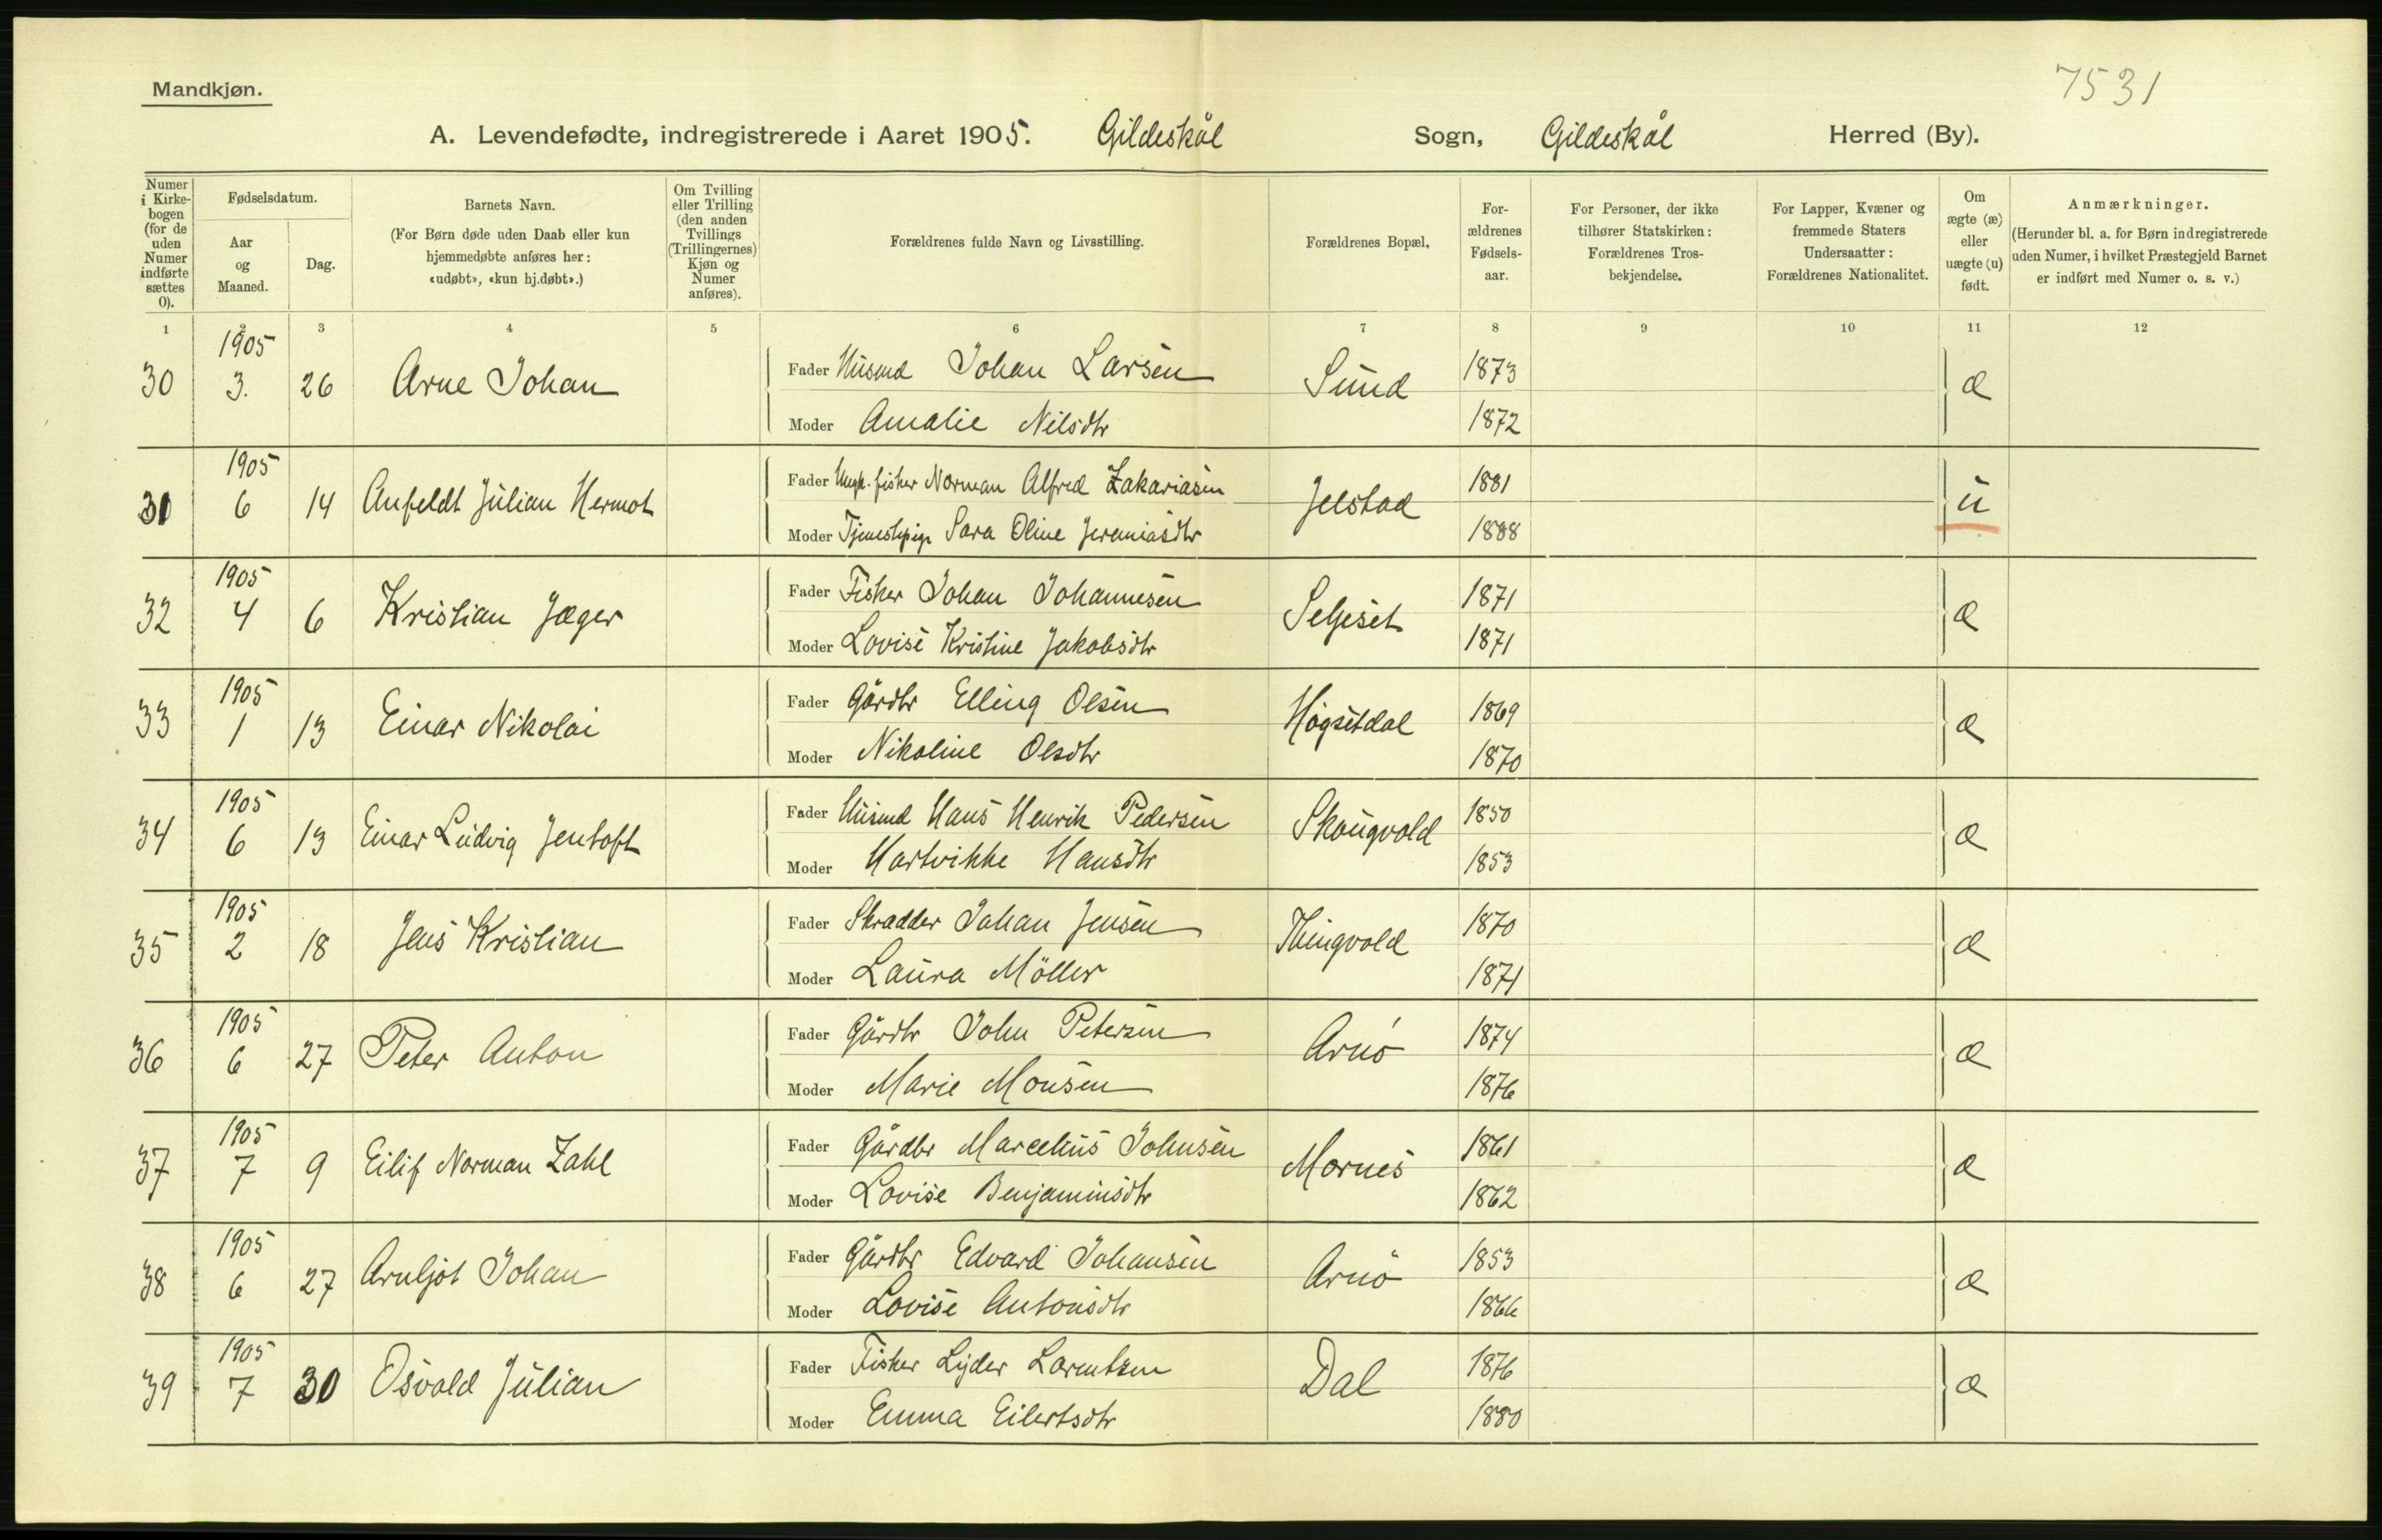 Mandkjøn.
7531
A. Levendefødte, indregistrerede i Aaret 1905. Gildeskål Sogn, Gildeskål Herred (By).
Numer i Kirke-bogen (for de uden Numer indførte sættes 0).
Fødselsdatum.
Aar og Maaned.
Dag.
Barnets Navn.
(For Børn døde uden Daab eller kun hjemmedøbte anføres her: «udøbt», «kun hj.døbt».)
Om Tvilling eller Trilling (den anden Tvillings (Trillingernes) Kjøn og Numer anføres).
Forældrenes fulde Navn og Livsstilling.
Forældrenes Bopæl,
For-ældrenes Fødsels-aar.
For Personer, der ikke tilhører Statskirken: Forældrenes Tros-bekjendelse.
For Lapper, Kvæner og fremmede Staters Undersaatter: Forældrenes Nationalitet.
Om ægte (æ) eller uægte (u) født.
Anmærkninger.
(Herunder bl. a. for Børn indregistrerede uden Numer, i hvilket Præstegjeld Barnet er indført med Numer o. s. v.)
1 2 3 4 5 6 7 8 9 10 11 12
30 1905 3. 26 Arne Johan Fader Husmd Johan Larsen Sund 1873 æ
Moder Amalie Nilsdtr 1872
31 1905 6 14 Anfeldt Julian Hermot Fader Ungk. fisker Norman Alfred Zakariasen Jelstad 1881 u
Moder Tjenestepige Sara Oline Jeremiasdtr 1888
32 1905 4 6 Kristian Jæger Fader Fisker Johan Johannesen Seljeset 1871 æ
Moder Lovise Kristine Jakobsdtr 1871
33 1905 1 13 Einar Nikolai Fader Gårdbr Elling Olsen Høgsetdal 1869 æ
Moder Nikoline Olsdtr 1870
34 1905 6 13 Einar Ludvig Jentoft Fader Husmd Hans Henrik Pedersen Skougvold 1850 æ
Moder Hartvikke Hansdtr 1853
35 1905 2 18 Jens Kristian Fader Skrædder Johan Jensen Thingvold 1870 æ
Moder Laura Möller 1871
36 1905 6 27 Peter Anton Fader Gårdbr John Petersen Arnö 1874 æ
Moder Marie Monsen 1876
37 1905 7 9 Eilif Norman Zahl Fader Gårdbr Marcelius Johnsen Mornes 1861 æ
Moder Lovise Benjaminsdtr 1862
38 1905 6 27 Arnljot Johan Fader Gårdbr Edvard Johansen Arnö 1853 æ
Moder Lovise Antonsdtr 1866
39 1905 7 30 Osvald Julian Fader Fisker Lyder Lorentzen Dal 1876 æ
Moder Emma Eilertsdtr 1880